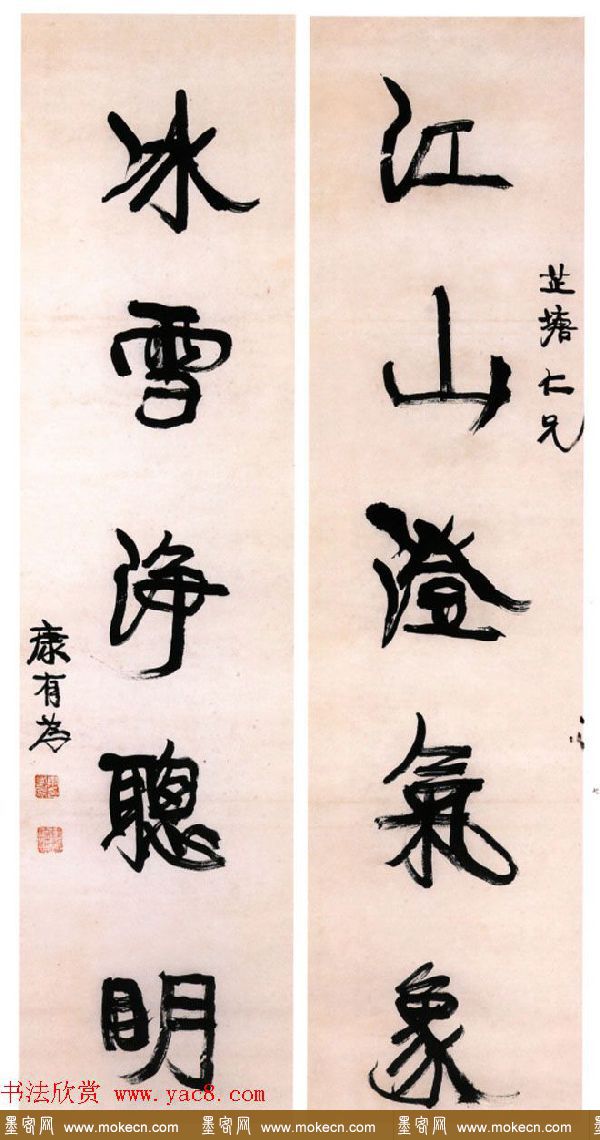 江山澄氣象
芷塘仁兄
冰雪淨聰明
康有為
书法欣赏 www.yac8.com
墨客网 www.mokecn.com 墨客网 www.mokecn.com 墨客网 www.mokecn.com